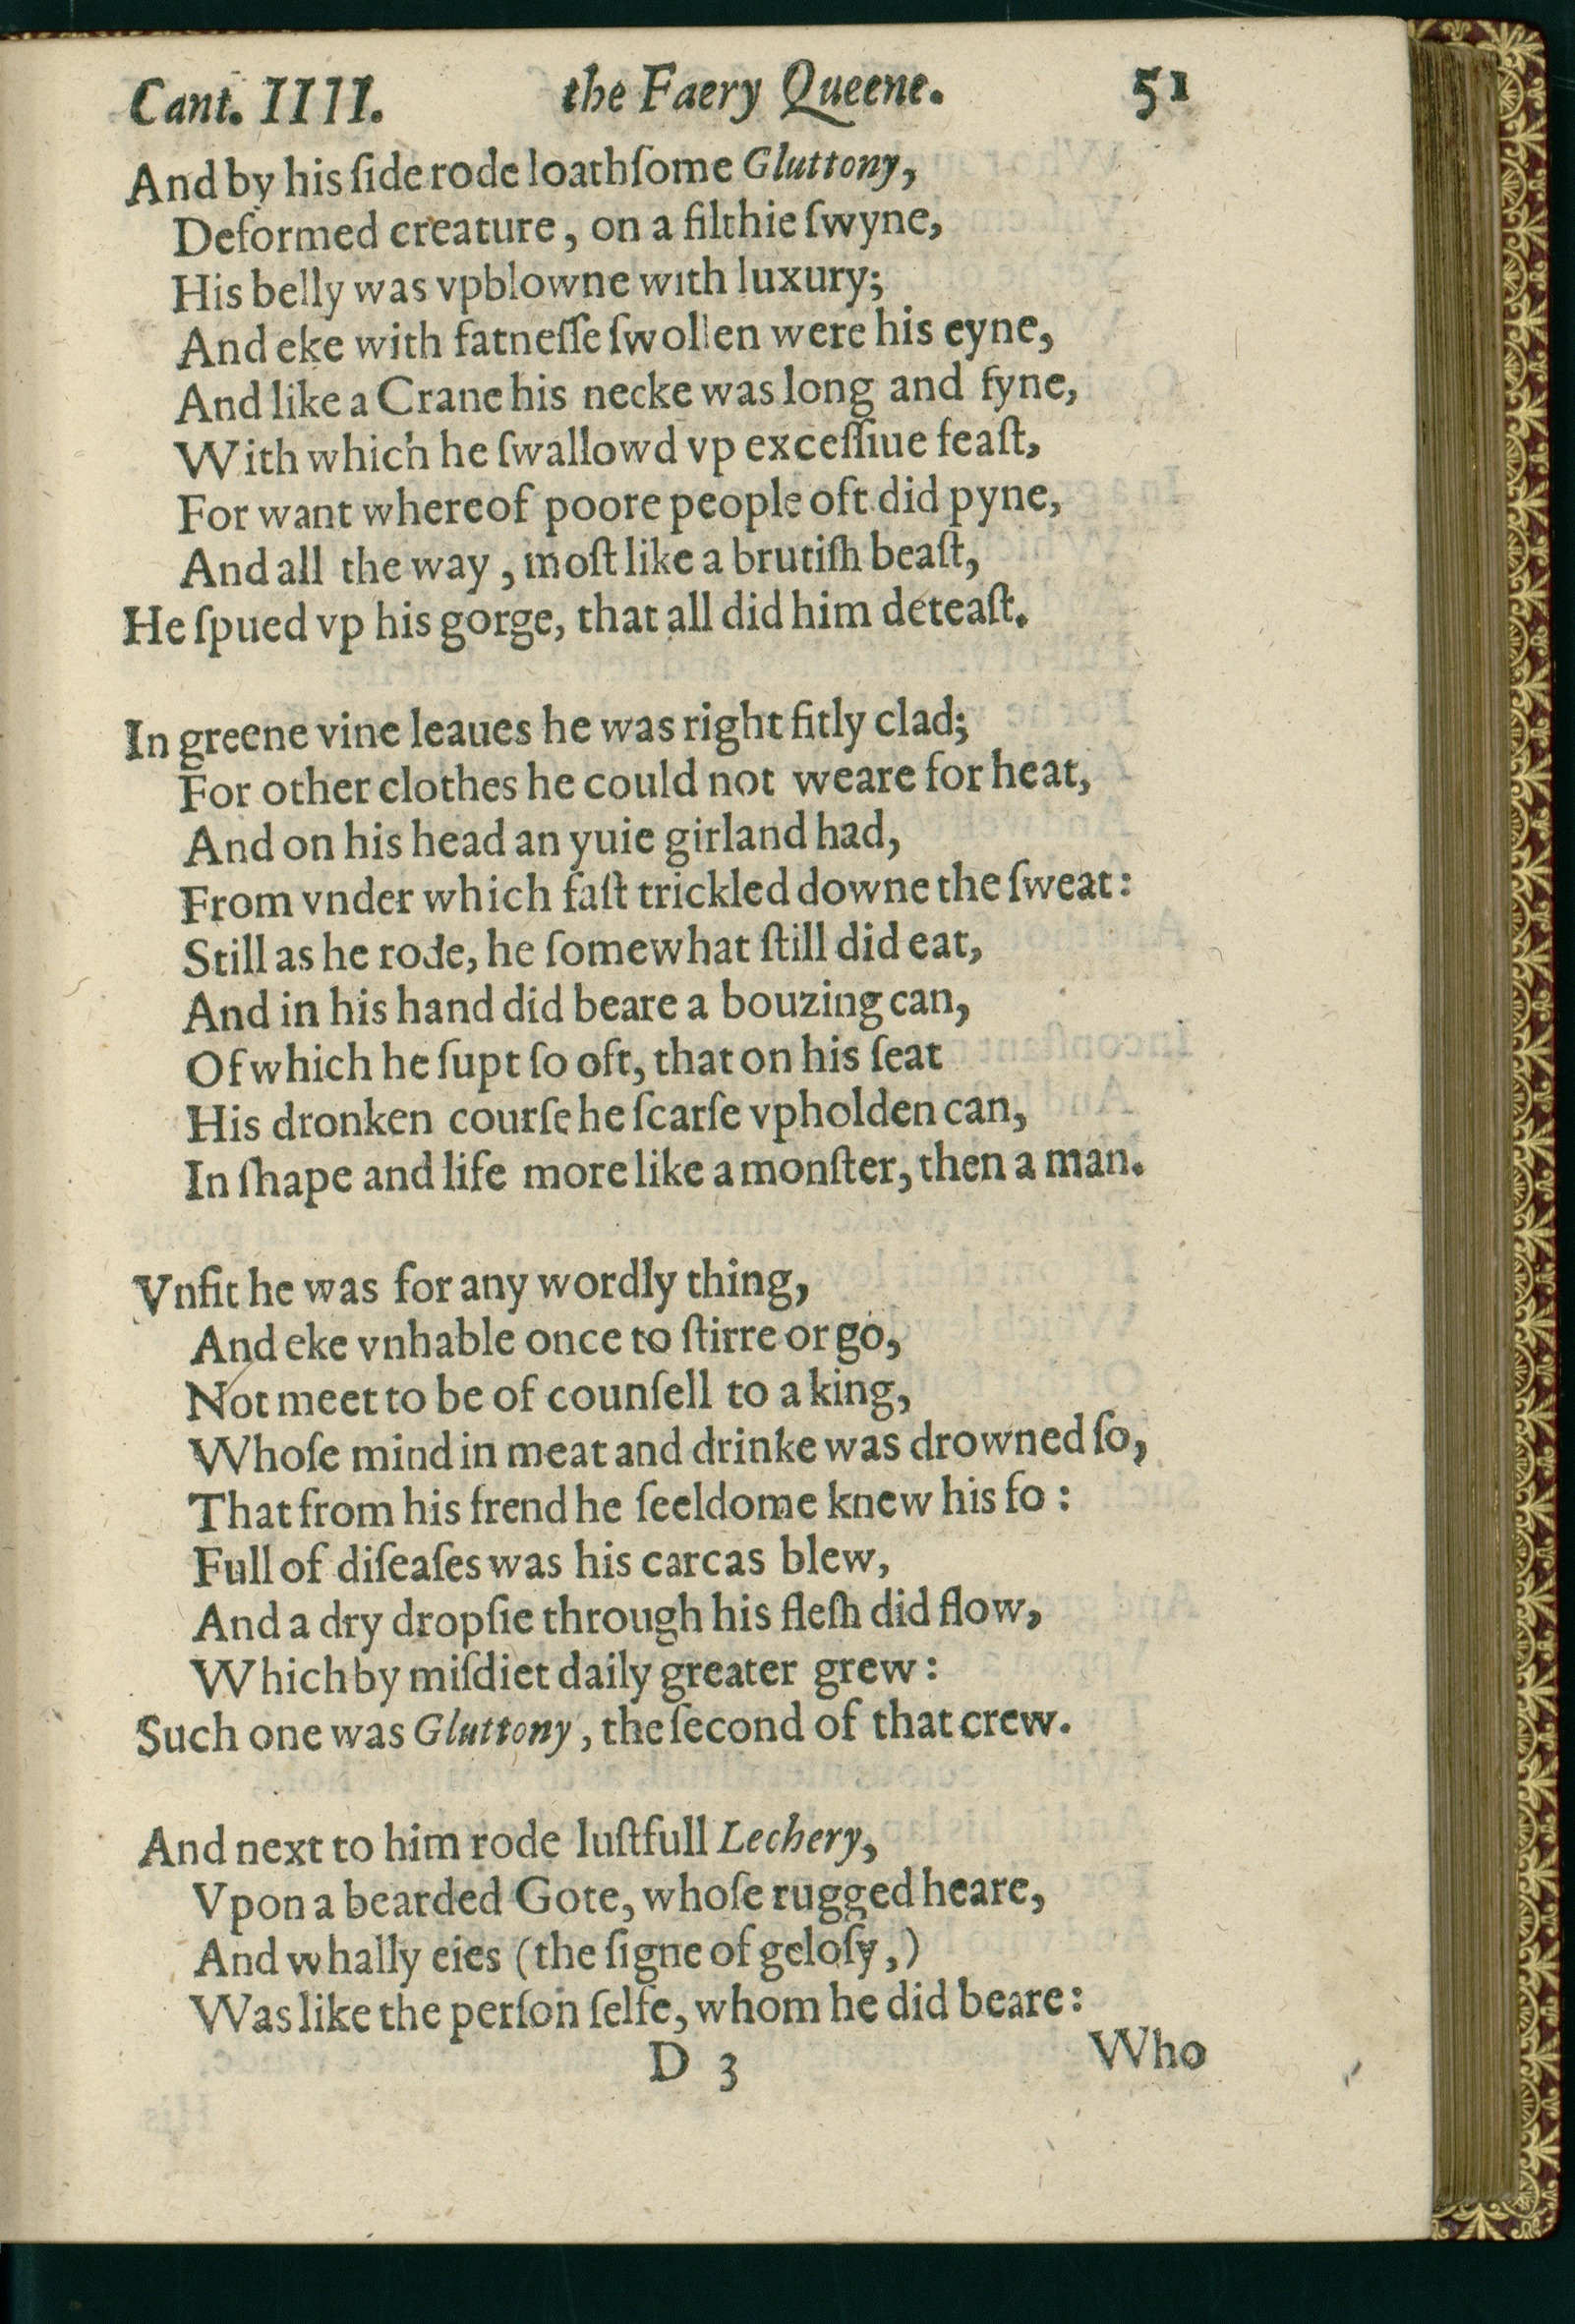 Cant. IIII. the Faery Queene. 51
And by his ſide rode loathſome Gluttony,
Deformed creature, on a filthie ſwyne,
His belly was vpblowne with luxury;
And eke with fatneſſe ſwollen were his eyne,
And like a Crane his necke was long and fyne,
With which he ſwallowd vp exceſſiue feaſt,
For want whereof poore people oft did pyne,
And all the way, moſt like a brutiſh beaſt,
He ſpued vp his gorge, that all did him deteaſt.
In greene vine leaues he was right fitly clad;
For other clothes he could not weare for heat,
And on his head an yuie girland had,
From vnder which faſt trickled downe the ſweat:
Still as he rode, he ſomewhat ſtill did eat,
And in his hand did beare a bouzing can,
Of which he ſupt ſo oft, that on his ſeat
His dronken courſe he ſcarſe vpholden can,
In ſhape and life more like a monſter, then a man.
Vnfit he was for any wordly thing,
And eke vnhable once to ſtirre or go,
Not meet to be of counſell to a king,
Whoſe mind in meat and drinke was drowned ſo,
That from his frend he ſeeldome knew his fo:
Full of diſeaſes was his carcas blew,
And a dry dropſie through his fleſh did flow,
Which by miſdiet daily greater grew:
Such one was Gluttony, the ſecond of that crew.
And next to him rode luſtfull Lechery,
Vpon a bearded Gote, whoſe rugged heare,
And whally eies (the ſigne of geloſy,)
Was like the perſon ſelfe, whom he did beare:
D 3 Who